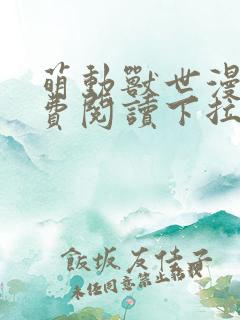 萌動獸世漫
費閱讀下拉
飯坂友佳子
未经同意禁止转载